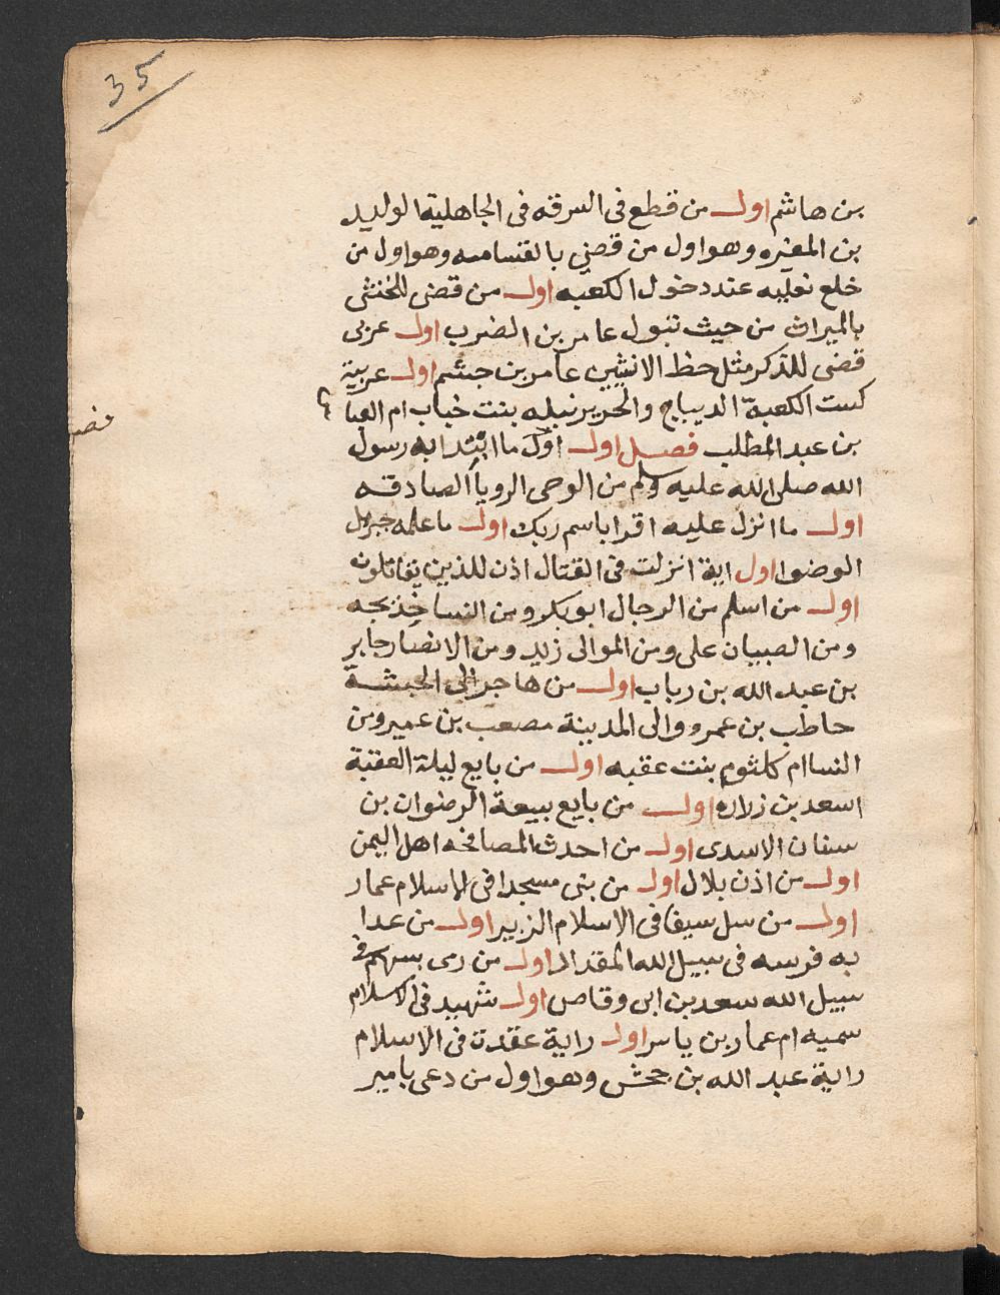 35
بن هاشم اول من قطع فى السرقه فى الجاهلية الوليد
بن المغيره وهو اول من قضي بالقسامه وهو اول من
خلع نعليه عند دخول الكعبه اول من قضى للخنثى
بالميراث من حيث تبول عامر بن الضرب اول عربى
قضى للذكر مثل حظ الانثيين عامر بن جشم اول عربية
كست الكعبة الديباج والحرير نبيله بنت خباب ام العبا
بن عبد المطلب فصل اول اول ما ابتدا به رسول
الله صلى الله عليه وسلم من الوحى الرويا الصادقه
اول ما انزل عليه اقرا باسم ربك اول ما علمه جبريل
الوضوا اول اية انزلت فى القتال اذن للذين يقاتلون
اول من اسلم من الرجال ابو بكر ومن النسا خديجه
ومن الصبيان على ومن الموالى زيد ومن الانصار جابر
بن عبد الله بن رياب اول من هاجر الى الحبشة
حاطب بن عمرو والى المدينة مصعب بن عمير ومن
النسا ام كلثوم بنت عقبه اول من بايع ليلة العقبة
اسعد بن زراره اول من بايع بيعة الرضوان بن
سنان الاسدى اول من احدث المصافحه اهل اليمن
اول من اذن بلال اول من بنى مسجدا فى الاسلام عمار
اول من سل سيفا فى الاسلام الزبير اول من عدا
به فرسه فى سبيل الله المقداد اول من رمى بسهم فى
سبيل الله سعد بن ابى وقاص اول شهيد فى الاسلام
سميه ام عمار بن ياسر اول راية عقدت فى الاسلام
راية عبد الله بن جحش وهو اول من دعى بامير